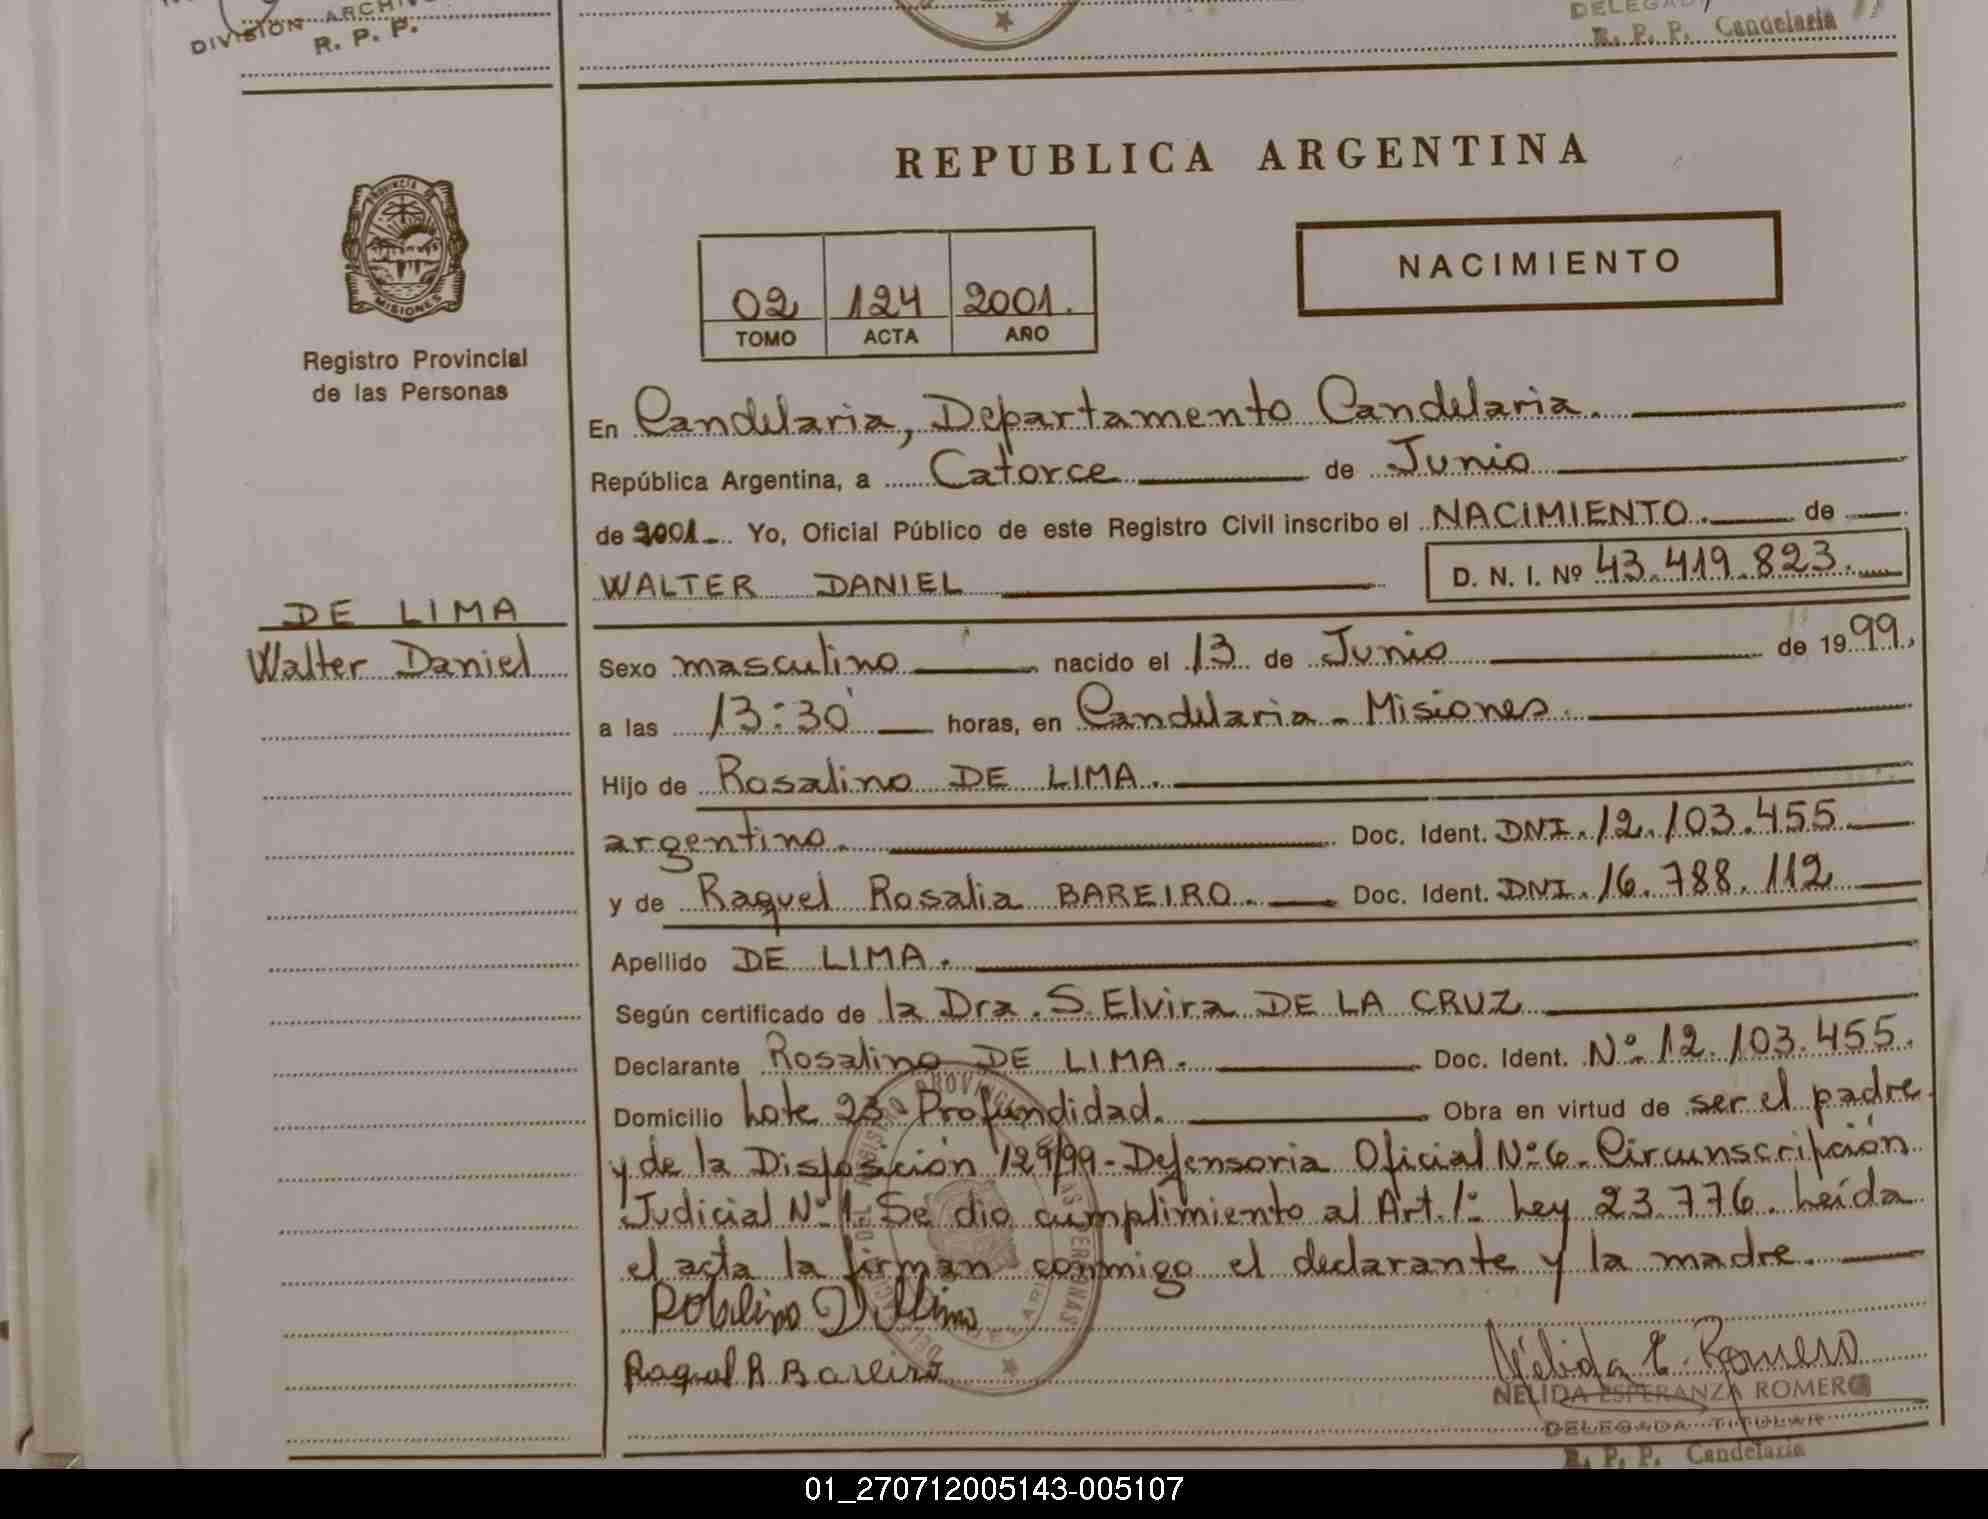 DIVISION ARCHIVO
R. P. P.
R. P. P. Candelaria
REPUBLICA ARGENTINA
PROVINCIA DE
MISIONES
Registro Provincial
de las Personas
02 124 2001.
TOMO ACTA AÑO
NACIMIENTO
En Candelaria, Departamento Candelaria.
República Argentina, a Catorce de Junio
de 2001 Yo, Oficial Público de este Registro Civil inscribo el NACIMIENTO. de
WALTER DANIEL D. N. I. Nº 43.419.823.
DE LIMA
Walter Daniel
Sexo masculino nacido el 13 de Junio de 1999.
a las 13:30 horas, en Candelaria - Misiones.
Hijo de Rosalino DE LIMA.
argentino. Doc. Ident. DNI. 12.103.455
y de Raquel Rosalia BAREIRO. Doc. Ident. DNI. 16.788.112
Apellido DE LIMA.
Según certificado de la Dra. S. Elvira DE LA CRUZ
Declarante Rosalino DE LIMA. Doc. Ident. Nº 12.103.455.
Domicilio Lote 23 - Profundidad. Obra en virtud de ser el padre
y de la Disposición 129/99 - Defensoria Oficial Nº 6 - Circunscripción
Judicial Nº 1. Se dio cumplimiento al Art. 1º Ley 23.776. Leída
el acta la firman conmigo el declarante y la madre.
Raquel R Bareiro
Nélida E. Romero
NELIDA ESPERANZA ROMERO
DELEGADA TITULAR
R. P. P. Candelaria
01_270712005143-005107